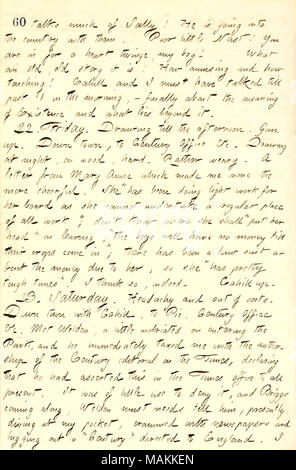 60 talks much of Sally! He is going into
the country with them. Poor little Nast! You
are in for a heart twinge, my boy! What
an old, old story it is! How amusing and how
touching! Cahill and I must have talked till
past 1 in the morning, - finally about the meaning
of Existence and what lies beyond it.
22. Friday. Drawing till the afternoon. Gun
up. Down town, to Century Office &c. Drawing
at night, on wood, hard. Rather weary. A
letter from Mary Anne which made me none the
more cheerful. She "has been doing light work for
her board as she cannot undertake a regular place
of all work," don't know where she shall "put her
head" on leaving, "the boys will have no money till
their wages come in"; there has been a law suit a-
bout the money due to her, so she "has pretty
tough times." I think so, indeed. Cahill up.
23. Saturday. Headachy and out of sorts.
Down town with Cahill, to "Pic," Century Office
&c. Met Welden, a little inebriated on entering the
Park, and he immediately taxed me with the author-
ship of the Century editorial on the Times, declaring
that he had asserted this in the Times office to all
present. It was of little use to deny it, and Briggs
coming along, Welden must needs tell him, presently
diving at my pocket, crammed with newspapers and
lugging out a "Century" directed to England. I
alamy
MAKKEN